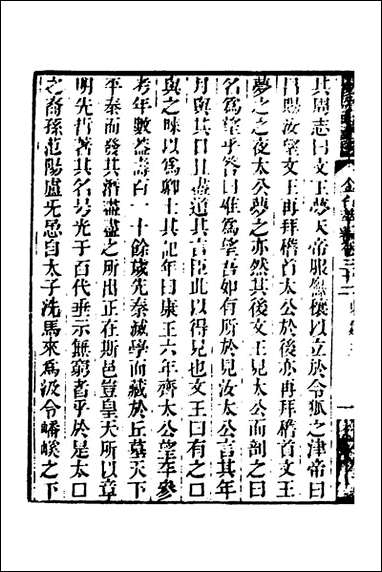 其周志曰文王夢天帝服無懷以立於令狐之津帝曰
昌賜汝望文王再拜稽首太公於後亦再拜稽首文王
夢之之夜太公夢之亦然其後文王見太公而訓之曰
名爲望乎答曰惟爲望吾如有所於見汝太公言其年
月與其日且盡道其言臣此以得見也文王曰有之囗
與之歸以爲卿士其記年曰康王六年齊太公望卒參
考年數蓋壽百一十餘歲先秦滅學而藏於丘墓天下
平泰而發其潛蓋盡之所出正在斯邑豈皇天所以章
明先哲著其名号光于百代垂示無窮者乎於是太囗
之裔孫范陽盧无忌自太子洗馬來爲汲令磻磎之下
金石萃編卷二十二